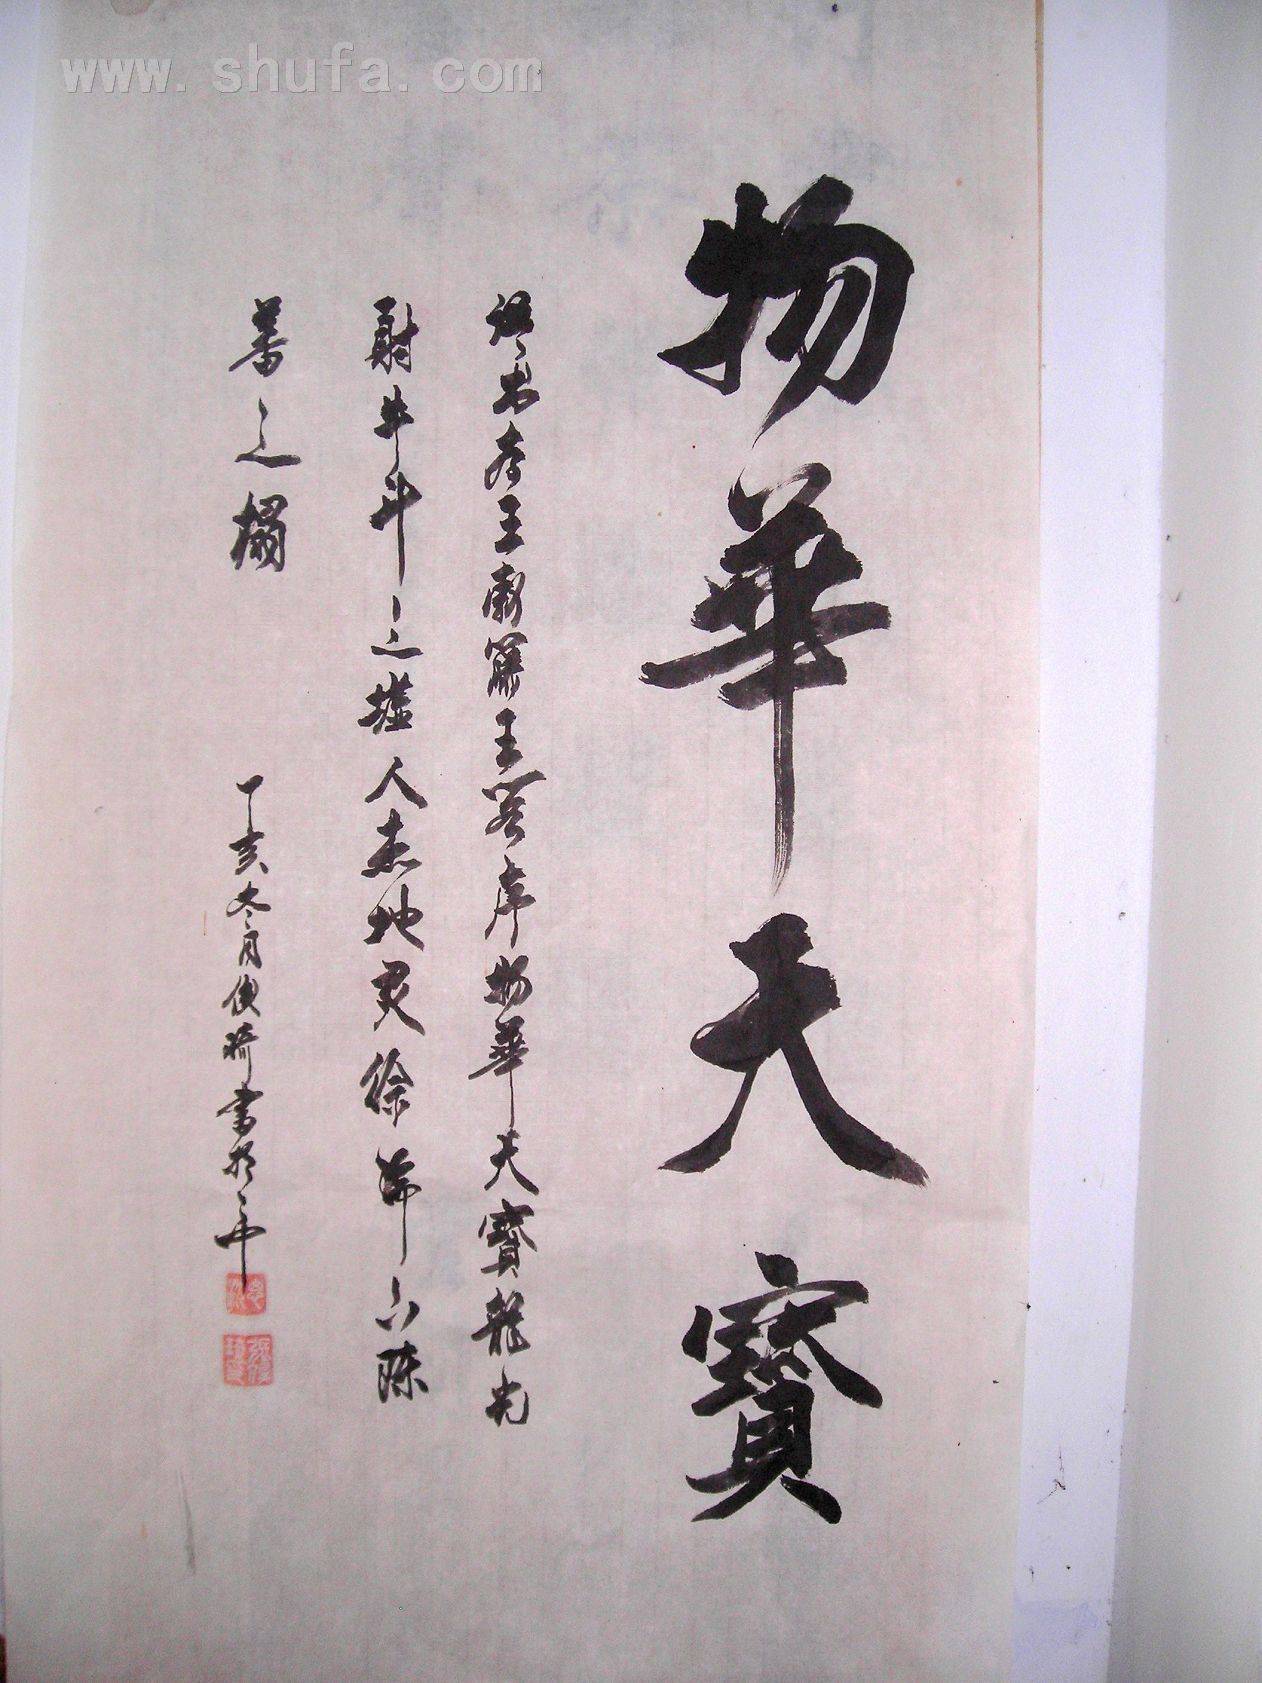 www.shufa.com
物華天寶
语出唐王勃滕王阁序物華天寶龍光
射牛斗之墟人杰地灵徐孺下陈
蕃之榻
丁亥冬月俊琦書於